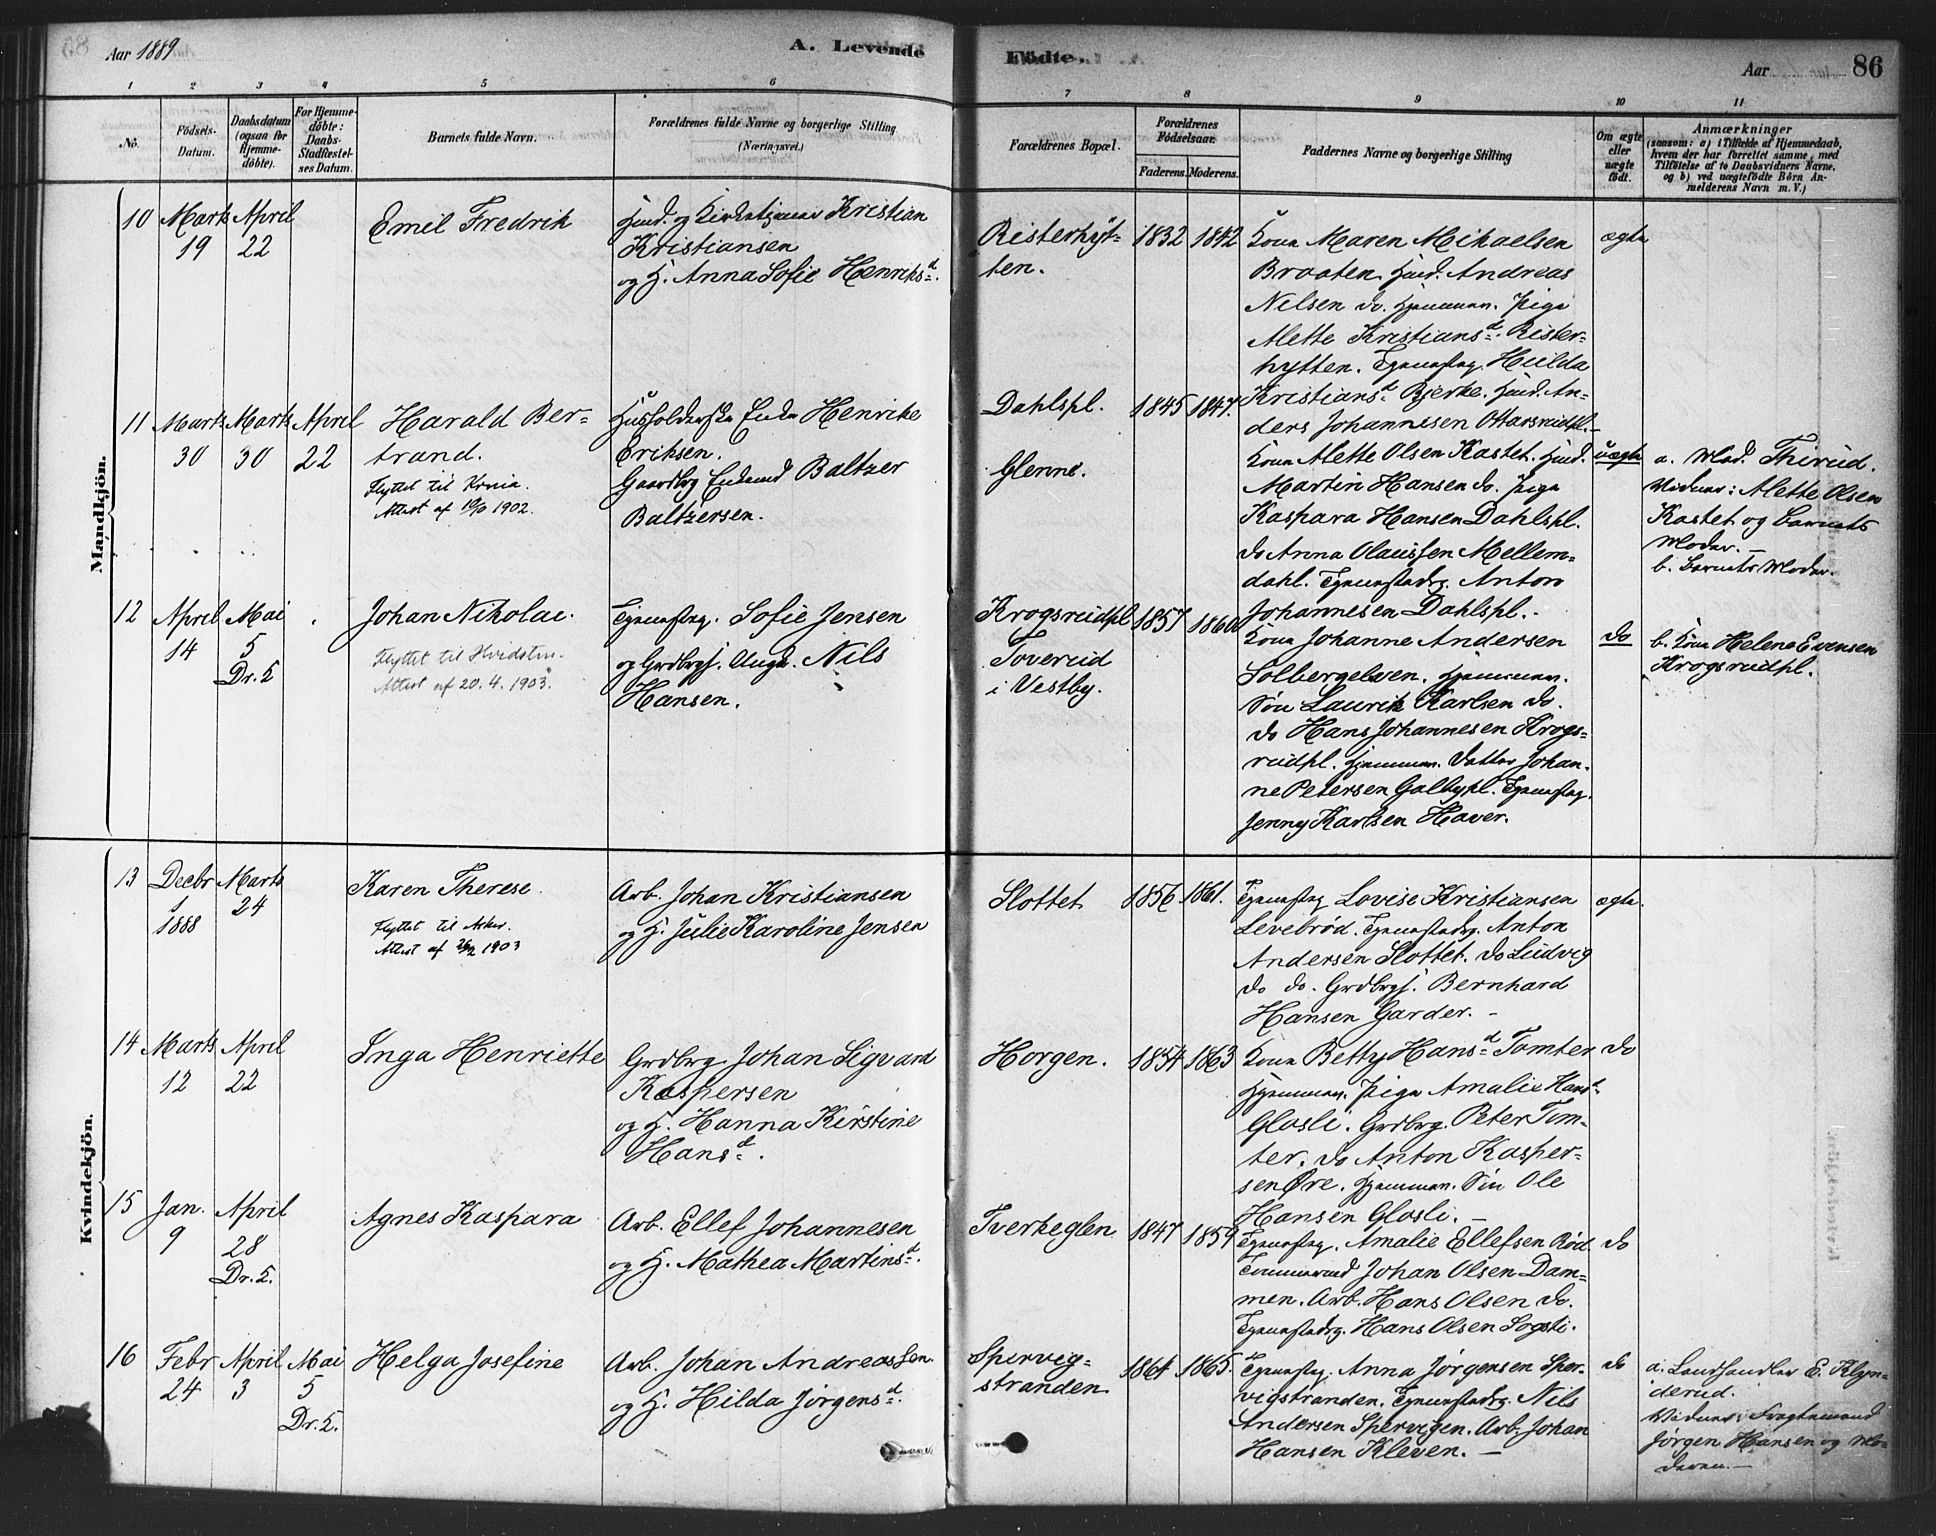 Aar 1889
A. Levende
Födte.
Aar
86
1 2 3 4 5 6 7 8 9 10 11
No.
Födsels-
Datum.
Daabsdatum
(ogsaa for
Hjemme-
döbte).
For Hjemme-
döbte:
Daabs-
Stadfæstel-
ses Datum.
Barnets fulde Navn.
Forældrenes fulde Navne og borgerlige Stilling
(Næringsvei.)
Forældrenes Bopæl.
Forældrenes
Födselsaar.
Faderens. Moderens.
Faddernes Navne og borgerlige Stilling
Om ægte
eller
uægte
födt.
Anmærkninger
(saasom: a) i Tilfælde af Hjemmedaab,
hvem der har forrettet samme, med
Tilföielse af to Daabsvidners Navne,
og b) ved uægtefödte Börn An-
melderens Navn m. V.)
Mandkjön.
10
Marts
19
April
22
Emil Fredrik
Husm. og Kirketjener Kristian
Kristiansen
og H. Anna Sofie Henriksd.
Risterhyt-
ten.
1832
1842
Kone Maren Mikaelsen
Braaten. Husm. Andreas
Nilsen do. Hjemmev. Pige
Alette Kristiansd. Rister-
hytten. Tjenestpg. Hulda
Kristiansd. Bjerke. Husm. An-
ders Johannesen Ottarsrudpl.
ægte
11
Marts
30
Marts
30
April
22
Harald Ber-
trand.
Flyttet til Krnia.
Attest af 10/10 1902.
Husholderske Enke Henrike
Eriksen.
Gaardbrg Enkemd Baltzer
Baltzersen.
Dahlspl.
Glenne.
1845
1847.
Kone Alette Olsen Kastet. Husm.
Martin Hansen do. Pige
Kaspara Hansen Dahlspl.
do Anna Olaussen Mellem-
dahl. Tjenestedrg. Anton
Johannesen Dahlspl.
uægte
a. Mad. Therud.
Vidner: Alette Olsen
Kastet og barnets
Moder. —
b. Barnets Moder.
12
April
14
Mai
5
Dr. 5
Johan Nikolai.
Flyttet til Hvidsten.
Attest af 20.4.1903.
Tjenestpg. Sofie Jensen
og Grdbrgs. Ungk. Nils
Hansen.
Krogsrudpl
Toverud
i Vestby.
1857
1860
Kone Johanne Andersen
Solbergelven. Hjemmev.
Sön Laurits Karlsen do.
do Hans Johannesen Krogs-
rudpl. Hjemmev. Datter Johan-
ne Petersen Galbypl. Tjenestpg.
Jenny Karlsen Haver.
do
b. Kone Helene Evensen
Krogsrudpl.
Kvindekjön.
13
Decbr
1
1888
Marts
24
Karen Therese.
Flyttet til Asker.
Attest af 26/2 1903
Arb. Johan Kristiansen
og H. Julie Karoline Jensen
Slottet
1856
1861.
Tjenestpg Lovise Kristiansen
Levebröd. Tjenestedrg. Anton
Andersen Slottet. do Ludvig
do do. Grdbrgs. Bernhard
Hansen Garder. —
ægte.
14
Marts
12
April
22
Inga Henriette
Grdbrg. Johan Sigvard
Kaspersen
og H. Hanna Kirstine
Hansd.
Horgen.
1854
1863
Kone Betty Hansd. Tomter
Hjemmev. Pige Amalie Hansd.
Glosli. Grdbrg. Peter Tom-
ter. do Anton Kasper-
sen Öre. Hjemmev. Sön Ole
Hansen Glosli. —
do
15
Jan.
9
April
28
Dr. 5.
Agnes Kaspara
Arb. Ellef Johannesen
og H. Mathea Martinsd.
Tverkeglen
1847
1859
Tjenestpg. Amalie Ellefsen Röd.
Tömmermd Johan Olsen Dam-
men. Arb. Hans Olsen do.
Tjenestedrg. Hans Olsen Sogsti.
do
16
Febr
24
April
3
Mai
5
Dr. 5.
Helga Josefine
Arb. Johan Andreassen.
og H. Hilda Jörgensd.
Spervig-
stranden
1864
1865.
Tjenestpg Anna Jörgensen Sper-
vigstranden. Tjenestedrg. Nils
Andersen Spervigen. Arb. Johan
Hansen Kleven. —
do
a. Landhandler E. Klyn-
derud.
Vidner: Fragtemand
Jörgen Hansen og Mo-
deren. —